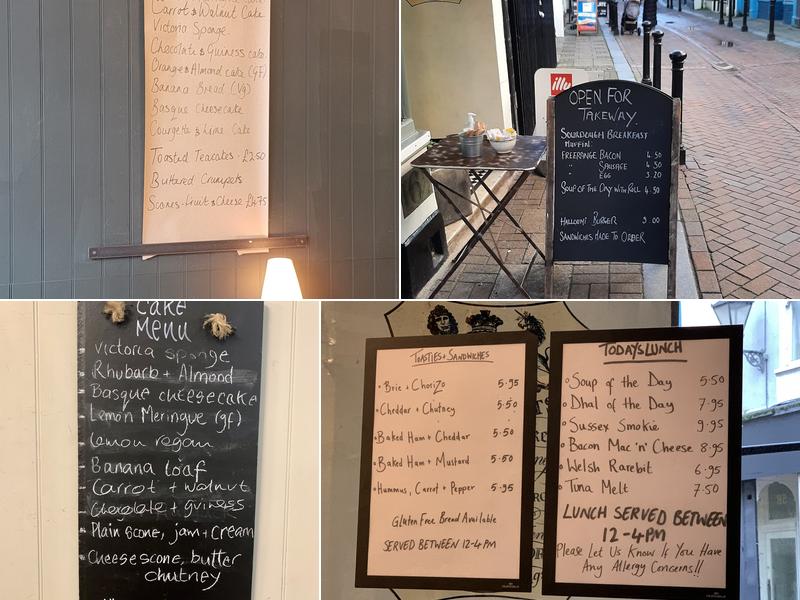 Carrot & Walnut Cake
Victoria Sponge
Chocolate & Guiness cake
Orange & Almond cake (GF)
Banana Bread (Vg)
Basque Cheesecake
Courgette & Lime Cake
Toasted Teacakes - £2.50
Buttered Crumpets
Scones - Fruit & Cheese £4.75
illy
OPEN FOR
TAKEWAY.
SOURDOUGH BREAKFAST
MUFFIN:
FREERANGE BACON 4.50
" SAUSAGE 4.50
" EGG 3.20
SOUP OF THE DAY WITH ROLL 4.50
HALLOUMI BURGER 9.00
SANDWICHES MADE TO ORDER
CAKE
MENU
- Victoria sponge
- Rhubarb + Almond
- Basque cheesecake
- Lemon Meringue (gf)
- Lemon vegan
- Banana loaf
- Carrot + walnut
- Chocolate + guiness
- Plain scone, jam + cream
- Cheese scone, butter
chutney
TOASTIES + SANDWICHES
• Brie + Chorizo 5.95
• Cheddar + Chutney 5.50
• Baked Ham + Cheddar 5.50
• Baked Ham + Mustard 5.50
• Hummus, Carrot + Pepper 5.95
Gluten Free Bread Available
SERVED BETWEEN 12-4PM
TODAYS LUNCH
• Soup of the Day 5.50
• Dhal of the Day 7.95
• Sussex Smokie 9.95
• Bacon Mac 'n' Cheese 8.95
• Welsh Rarebit 6.95
• Tuna Melt 7.50
LUNCH SERVED BETWEEN
12-4PM
Please Let Us Know If You Have
Any Allergy Concerns!!